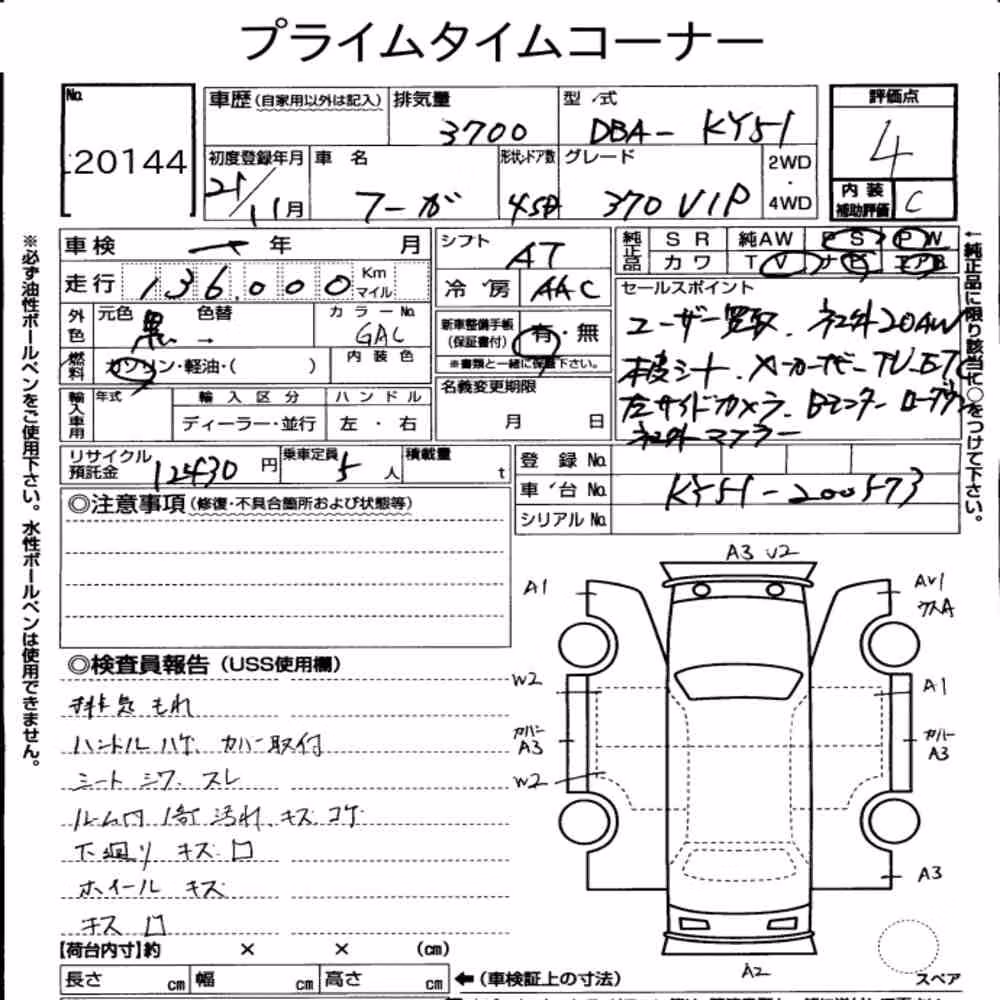 プライムタイムコーナー
No.
20144
車歴(自家用以外は記入)
排気量
3700
型/式
DBA- KY51
評価点
4
内装
補助評価
C
初度登録年月
21/11月
車名
フーガ
形状ドア数
4SD
グレード
370 VIP
2WD
・
4WD
※必ず油性ボールペンをご使用下さい。水性ボールペンは使用できません。
車検
一 年 月
シフト
AT
純正品
SR 純AW PS PW
カワ TV ナビ エアB
←純正品に限り該当に○をつけて下さい。
走行
136.000
Km
マイル
冷房
AAC
セールスポイント
ユーザー買取. 社外20AW
本皮シート. メーカーナビー TV. ETC
左サイドカメラ. Bモニター ローダウン
社外マフラー
外色
元色 黒 → 色替
カラーNo.
GAL
新車整備手帳
(保証書付)
有・無
※書類と一緒に保管下さい。
燃料
ガソリン・軽油・( )
内装色
名義変更期限
月 日
輸入車用
年式
輸入区分
ハンドル
ディーラー・並行
左・右
リサイクル
預託金
12430円
乗車定員 5人
積載量 t
登録No.
車台No.
KY51-200573
シリアルNo.
◎注意事項(修復・不具合箇所および状態等)
◎検査員報告(USS使用欄)
排気もれ
ハンドル ハゲ. カバー取付
シート シワ. スレ
ルーム内 1部 汚れ. キズ コゲ
下廻り キズ 凹
ホイール キズ
キズ 凹
A3 V2
A1
AV1
ウスA
W2
A1
カバー
A3
カバー
A3
W2
A3
A2
スペア
【荷台内寸】約 × × (cm)
長さ cm 幅 cm 高さ cm ←(車検証上の寸法)